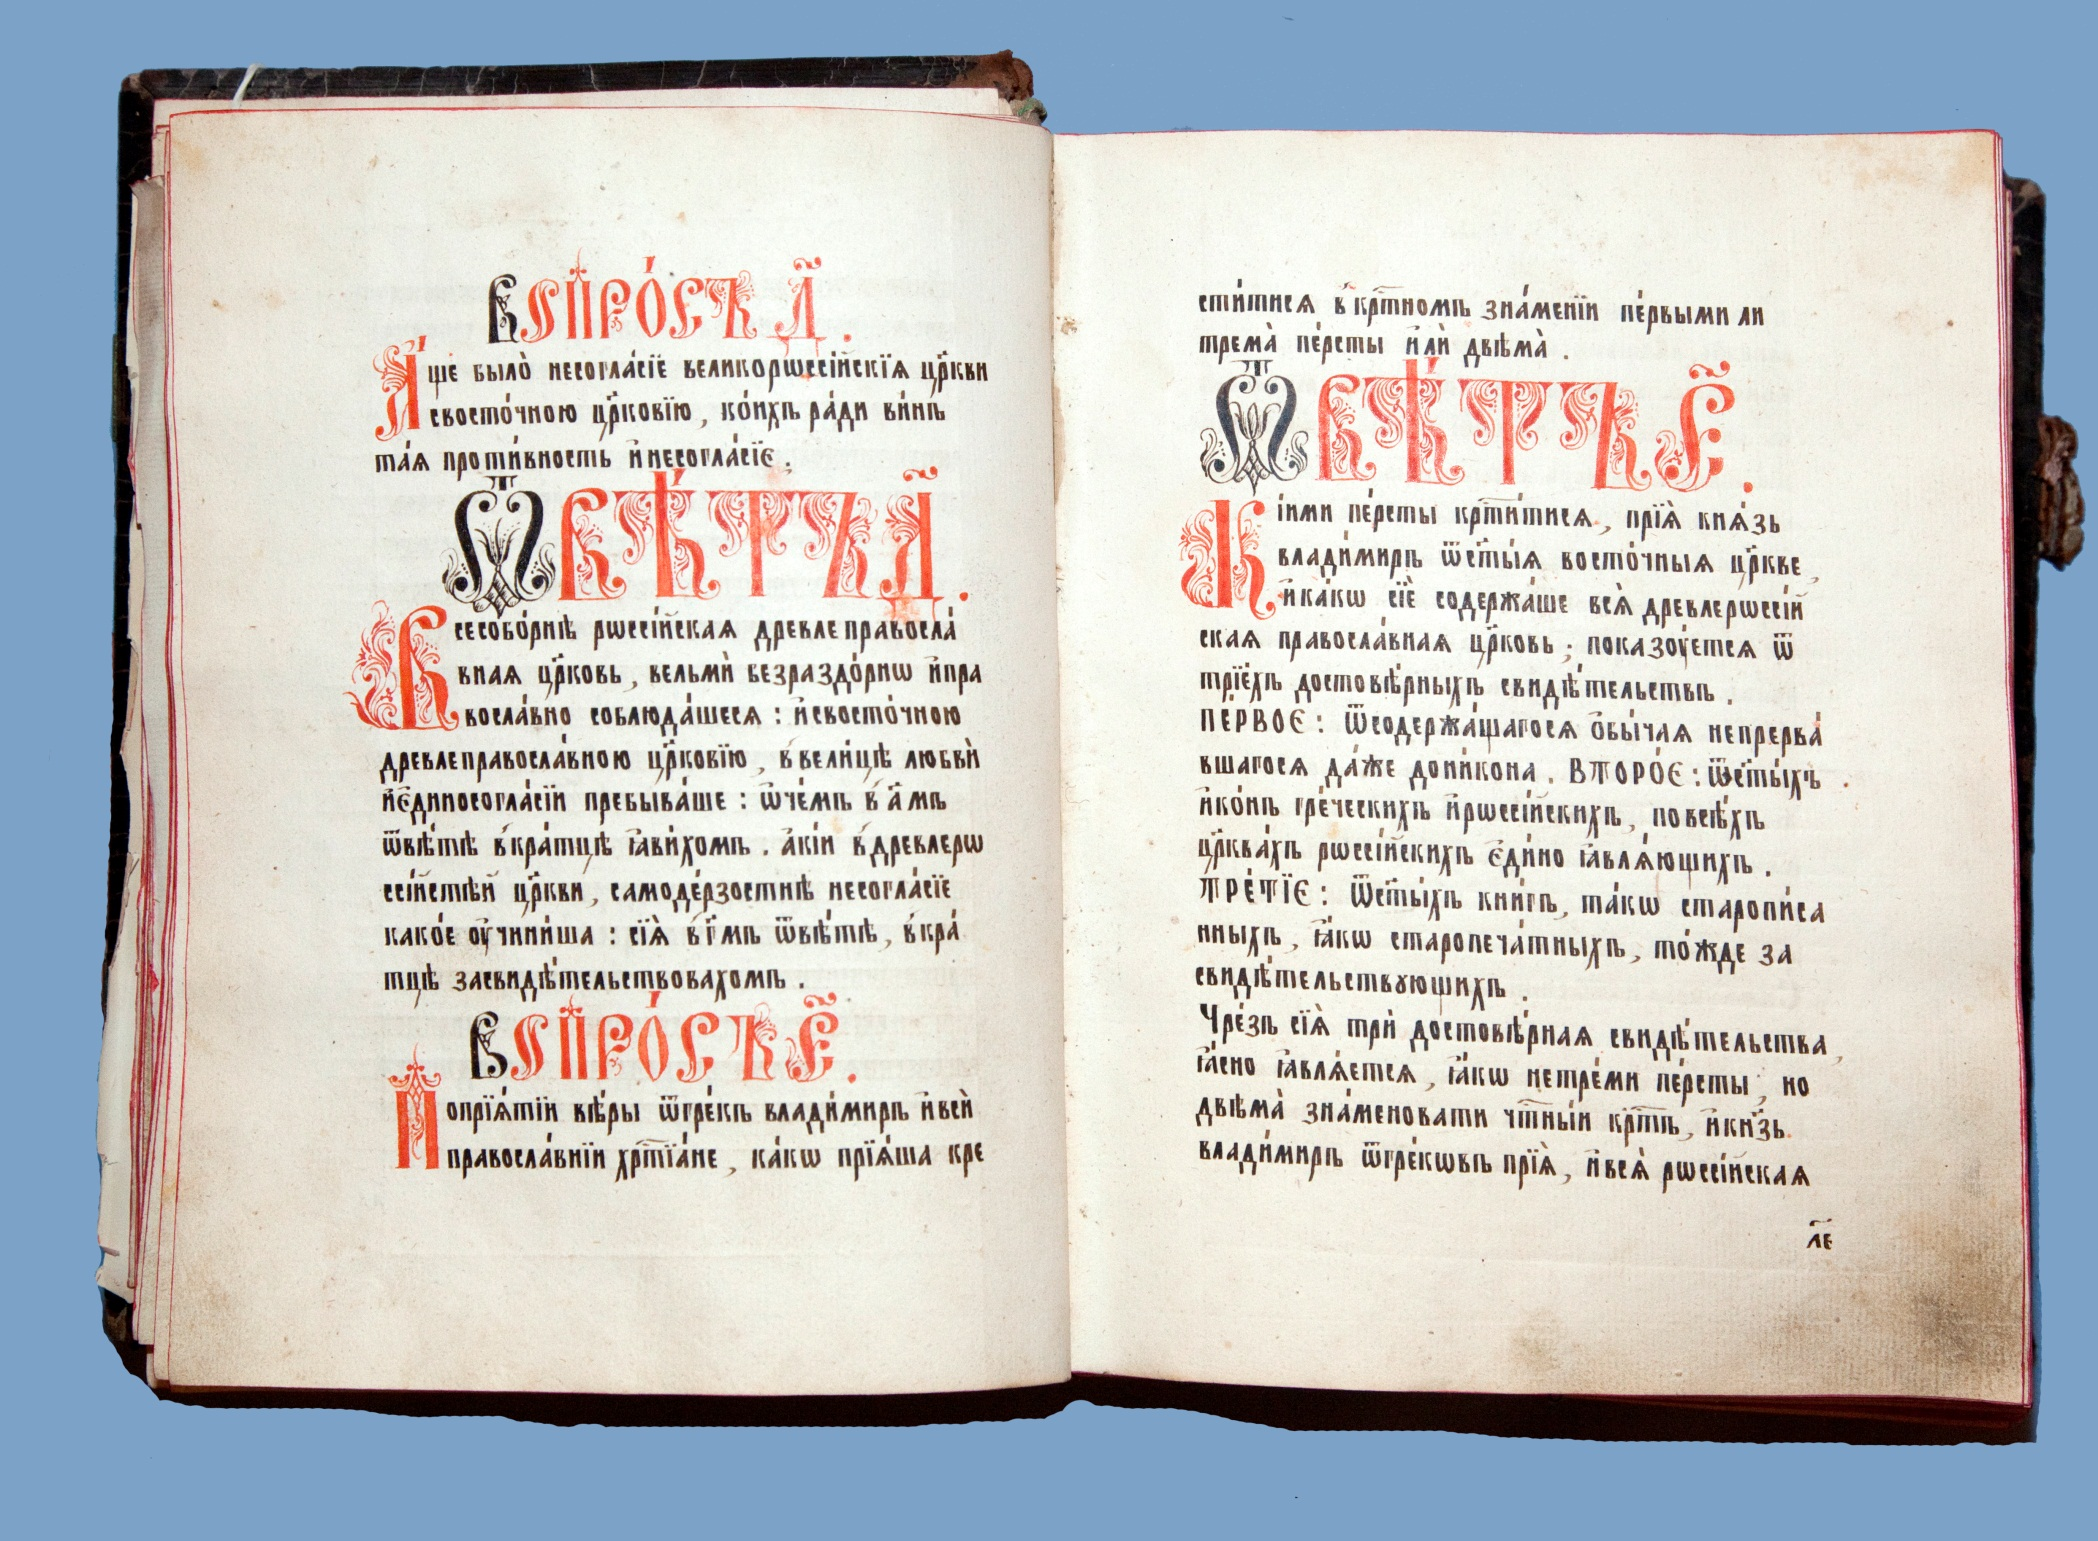 Вопро́съ д҃.
А҆́ще было̀ несогла́сїе великорѡссі́йскїѧ цр҃кви
свосто́чною цр҃ковїю, ко́ихъ ра́ди ви́нъ
та́ѧ проти́вность и҆несогла́сїє.
Ѿвѣ́тъ д҃.
Всесобо́рнѣ рѡссі́йскаѧ древлеправосла́
внаѧ цр҃ковь, вельмѝ безраздо́рнѡ и҆пра
восла́вно соблюда́шесѧ: и҆свосто́чною
древлеправосла́вною цр҃ковїю, ввели́цѣ любвѝ
и҆є҆диносогла́сїи пребыва́ше: ѡ҆че́мъ в а҃мъ
ѿвѣ́тѣ вкра́тцѣ ꙗ҆ви́хомъ. а҆кі́и вдревлерѡ
ссі́йстѣй цр҃кви, самоде́рзостнѣ несогла́сїе
како́е ᲂу҆чини́ша: сїѧ̀ в г҃мъ ѿвѣ́тѣ, вкра́
тцѣ засвидѣ́тельствовахомъ.
Вопро́съ є҃.
Поприѧ́тїи вѣ́ры ѿгре́къ влади́миръ и҆всѝ
правосла́внїи хрⷭ҇тїа́не, ка́кѡ прїѧ́ша кре
сти́тисѧ в крⷭ҇тномъ зна́менїи пе́рвыми ли
трема̀ пе́рсты и҆лѝ двѣма̀.
Ѿвѣ́тъ є҃.
Кі́ими пе́рсты крⷭ҇ти́тисѧ, прїѧ̀ кнѧ́зь
влади́миръ ѿст҃ы́ѧ восто́чныѧ цр҃кве,
и҆ка́кѡ сїѐ содержа́ше всѧ̀ древлерѡссі́й
скаѧ правосла́внаѧ цр҃ковь; показꙋ́етсѧ ѿ
трїе́хъ достовѣ́рныхъ свидѣ́тельствъ.
ПЕРВОЄ: ѿсодержа́щагосѧ ѻ҆бы́чаѧ непрерва́
вшагосѧ да́же дони́кона. ВТОРО́Є: ѿст҃ы́хъ
и҆ко́нъ гре́ческихъ и҆рѡссі́йскихъ, повсѣ́хъ
цр҃ква́хъ рѡссі́йскихъ є҆ди́но ꙗ҆влѧ́ющихъ.
ТРЕ́ТЇЄ: ѿст҃ы́хъ кни́гъ, та́кѡ старопи́са
нныхъ, ꙗ҆́кѡ старопеча́тныхъ, то́жде за
свидѣ́тельствꙋющихъ.
Чре́зъ сїѧ̀ трѝ достовѣ́рнаѧ свидѣ́тельства,
ꙗ҆́сно ꙗ҆влѧ́етсѧ, ꙗ҆́кѡ нетре́ми пе́рсты, но
двѣма̀ зна́меновати чⷭ҇тны́и крⷭ҇тъ, и҆кн҃зь
влади́миръ ѿгре́кѡвъ прїѧ̀, и҆всѧ̀ рѡссі́йскаѧ
л҃е